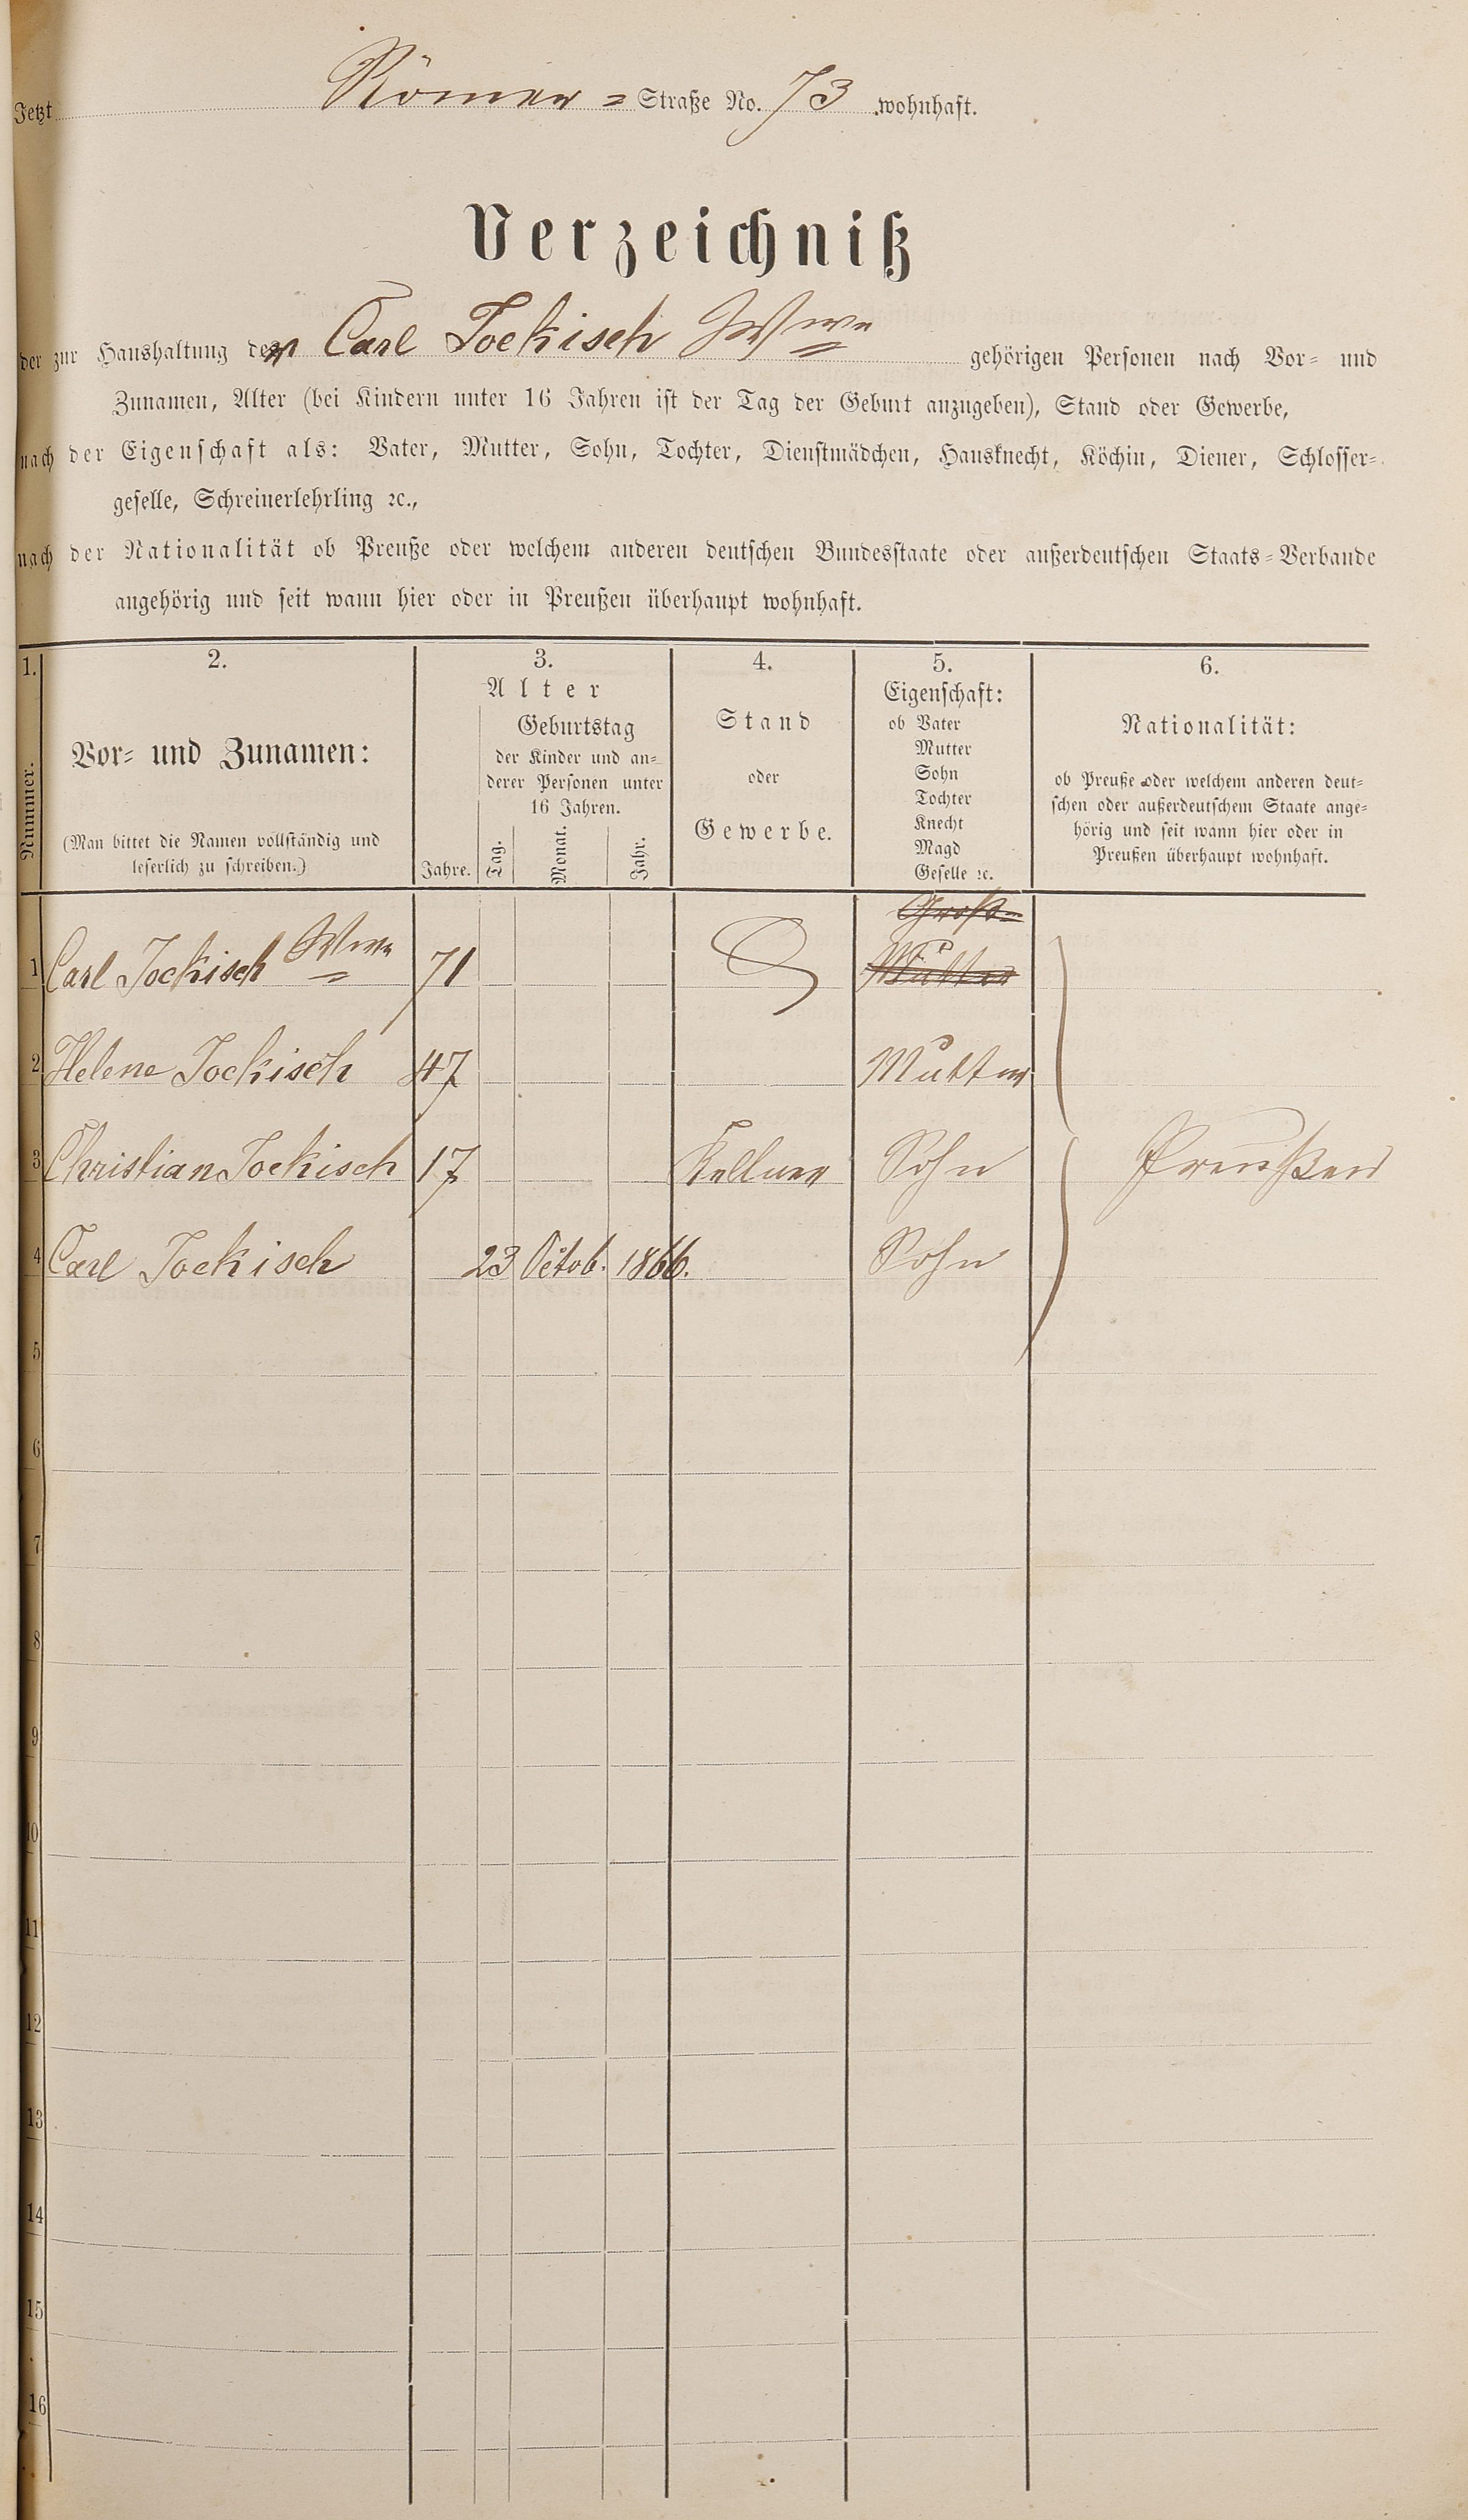 Jetzt Römer = Straße No. 73 wohnhaft.
Verzeichniß
der zur Haushaltung der Carl Jockisch Wwe gehörigen Personen nach Vor- und
Zunamen, Alter (bei Kindern unter 16 Jahren ist der Tag der Geburt anzugeben), Stand oder Gewerbe,
nach der Eigenschaft als: Vater, Mutter, Sohn, Tochter, Dienstmädchen, Hausknecht, Köchin, Diener, Schlosser-
geselle, Schreinerlehrling ꝛc.,
nach der Nationalität ob Preuße oder welchem anderen deutschen Bundesstaate oder außerdeutschen Staats-Verbande
angehörig und seit wann hier oder in Preußen überhaupt wohnhaft.
1. 2. 3. 4. 5. 6.
Nummer.
Vor- und Zunamen:
(Man bittet die Namen vollständig und
leserlich zu schreiben.)
Alter
Jahre.
Geburtstag
der Kinder und an-
derer Personen unter
16 Jahren.
Tag. Monat. Jahr.
Stand
oder
Gewerbe.
Eigenschaft:
ob Vater
Mutter
Sohn
Tochter
Knecht
Magd
Geselle ꝛc.
Nationalität:
ob Preuße oder welchem anderen deut-
schen oder außerdeutschem Staate ange-
hörig und seit wann hier oder in
Preußen überhaupt wohnhaft.
Groß-
1 Carl Jockisch Wwe 71 Mutter
2 Helene Jockisch 47 Mutter
3 Christian Jockisch 17 Kellner Sohn Preußen
4 Carl Jockisch 23 Octob. 1866. Sohn
5
6
7
8
9
10
11
12
13
14
15
16